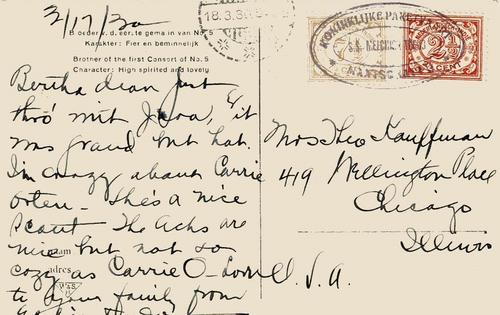 3/17/30
18.3.30
Broeder v. d. eerste gemalin van No 5
Karakter: Fier en beminnelijk
Brother of the first Consort of No. 5
Character: High spirited and lovely
KONINKLIJKE PAKET
7½
2½
CENT
Bertha dear just
thro' with Java, & it
was grand but hot.
I'm crazy about Carrie
Orten. She's a nice
scout. The Acks are
nice but not so
cozy as Carrie O— Love
to your family from
naam
adres
Mrs Theo Kauffman
419 Wellington Place
Chicago
Illinois
U. S. A.